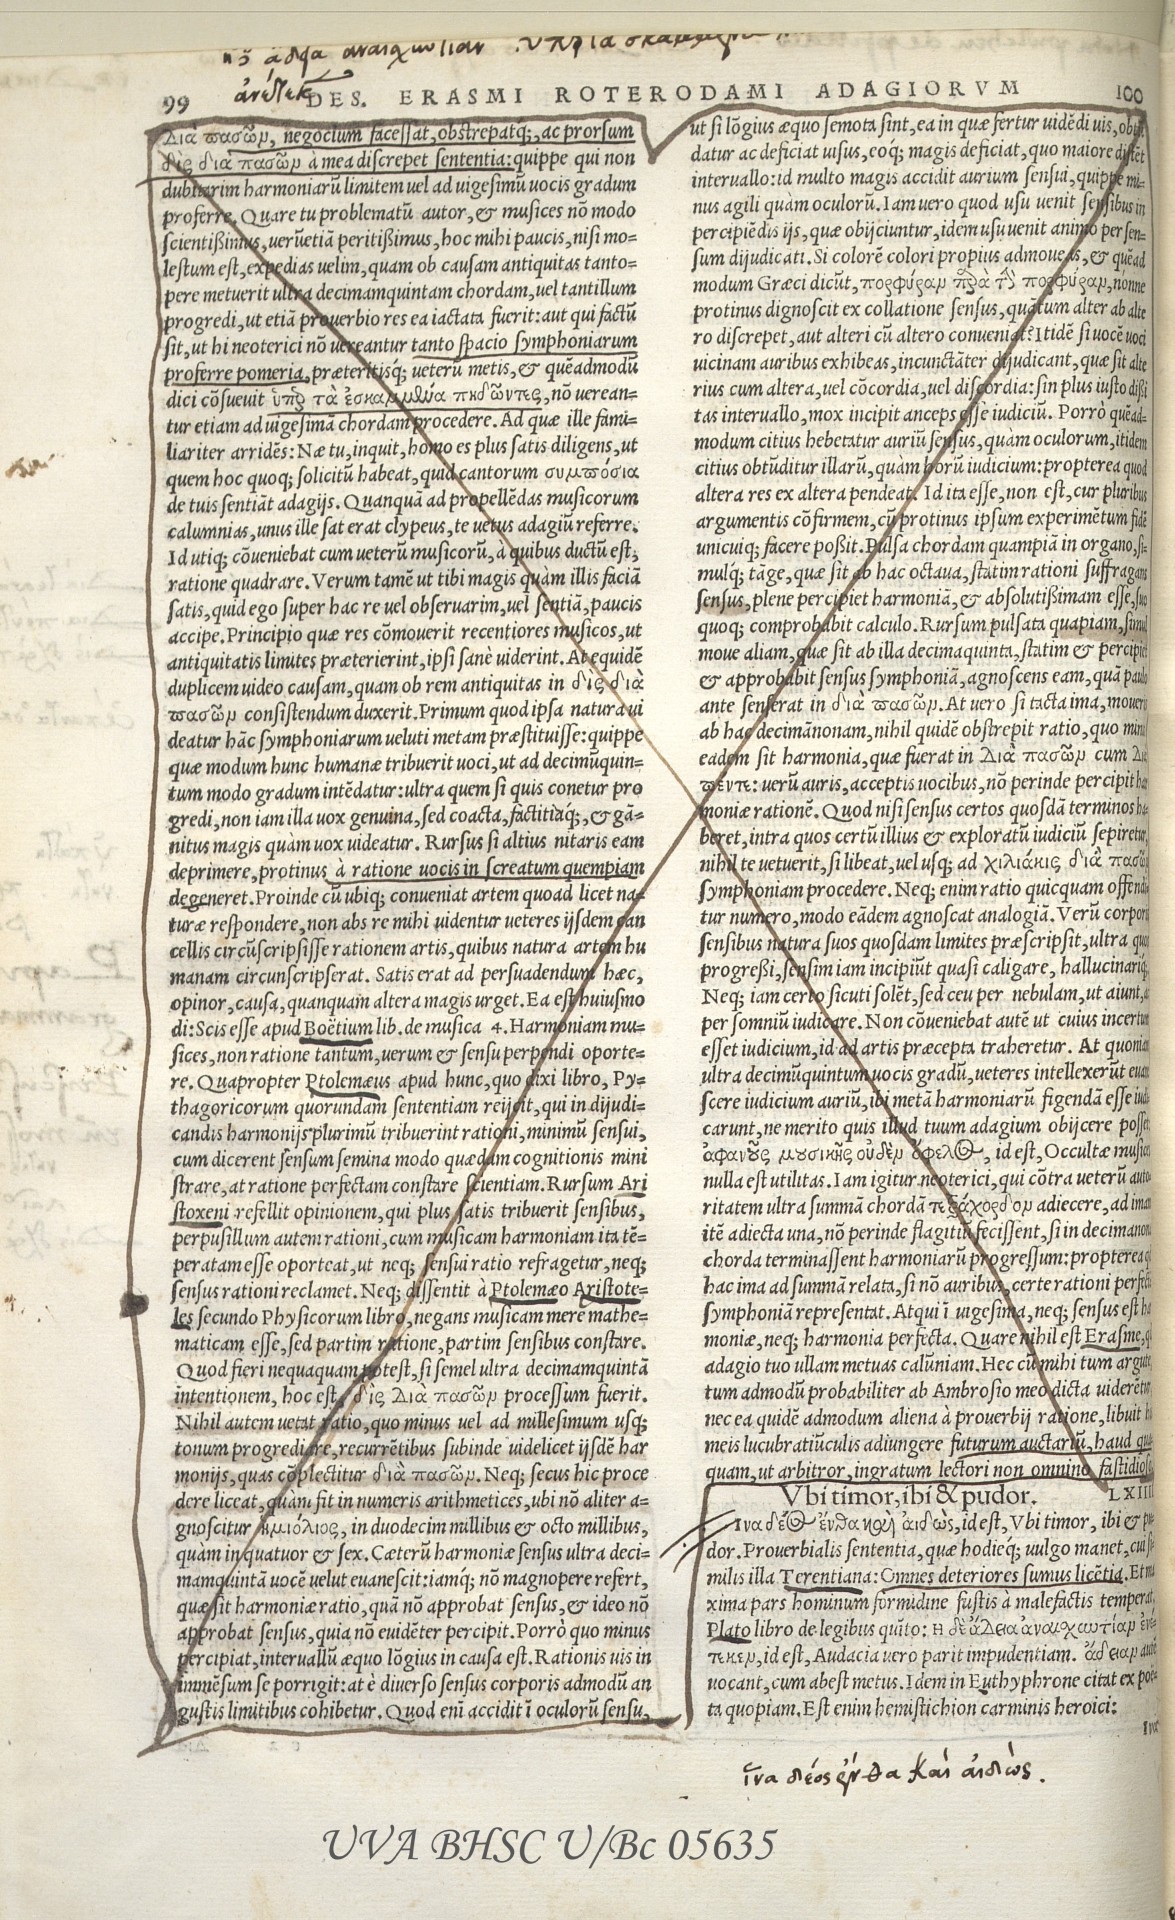 ἀνέτεκ
99 DES. ERASMI ROTERODAMI ADAGIORVM 100
Διὰ πασῶν, negocium facessat, obstrepatq́;, ac prorsum
δὶς διὰ πασῶν à mea discrepet sententia: quippe qui non
dubitarim harmoniarũ limitem uel ad uigesimũ uocis gradum
proferre. Quare tu problematũ autor, & musices nõ modo
scientißimus, uerũetiã peritißimus, hoc mihi paucis, nisi mo=
lestum est, expedias uelim, quam ob causam antiquitas tanto=
pere metuerit ultra decimamquintam chordam, uel tantillum
progredi, ut etiã prouerbio res ea iactata fuerit: aut qui factũ
sit, ut hi neoterici nõ uereantur tanto spacio symphoniarum
proferre pomeria, præteritisq́; ueterũ metis, & quẽadmodũ
dici cõsueuit ὑπὲρ τὰ ἐσκαμμθύα πηδῶντες, nõ uerean=
tur etiam ad uigesimã chordam procedere. Ad quæ ille fami=
liariter arridẽs: Næ tu, inquit, homo es plus satis diligens, ut
quem hoc quoq; solicitũ habeat, quid cantorum συμπόσια
de tuis sentiãt adagijs. Quanquã ad propellẽdas musicorum
calumnias, unus ille sat erat clypeus, te uetus adagiũ referre.
Id utiq; cõueniebat cum ueterũ musicorũ, à quibus ductũ est,
ratione quadrare. Verum tamẽ ut tibi magis quàm illis faciã
satis, quid ego super hac re uel obseruarim, uel sentiã, paucis
accipe. Principio quæ res cõmouerit recentiores musicos, ut
antiquitatis limites præterierint, ipsi sanè uiderint. At equidẽ
duplicem uideo causam, quam ob rem antiquitas in δὶς διὰ
πασῶν consistendum duxerit. Primum quod ipsa natura ui
deatur hãc symphoniarum ueluti metam præstituisse: quippe
quæ modum hunc humanæ tribuerit uoci, ut ad decimũquin=
tum modo gradum intẽdatur: ultra quem si quis conetur pro
gredi, non iam illa uox genuina, sed coacta, factitiaq́;, & gã=
nitus magis quàm uox uideatur. Rursus si altius nitaris eam
deprimere, protinus à ratione uocis in screatum quempiam
degeneret. Proinde cũ ubiq; conueniat artem quoad licet na=
turæ respondere, non abs re mihi uidentur ueteres ijsdem can
cellis circũscripsisse rationem artis, quibus natura artem hu
manam circunscripserat. Satis erat ad persuadendum hæc,
opinor, causa, quanquam altera magis urget. Ea est huiusmo
di: Scis esse apud Boëtium lib. de musica 4. Harmoniam mu=
sices, non ratione tantum, uerum & sensu perpendi oporte=
re. Quapropter Ptolemæus apud hunc, quo dixi libro, Py=
thagoricorum quorundam sententiam reijcit, qui in dijudi=
candis harmonijs plurimũ tribuerint rationi, minimũ sensui,
cum dicerent sensum semina modo quædam cognitionis mini
strare, at ratione perfectam constare scientiam. Rursum Ari
stoxeni refellit opinionem, qui plus satis tribuerit sensibus,
perpusillum autem rationi, cum musicam harmoniam ita tẽ=
peratam esse oporteat, ut neq; sensui ratio refragetur, neq;
sensus rationi reclamet. Neq; dissentit à Ptolemæo Aristote=
les secundo Physicorum libro, negans musicam mere mathe=
maticam esse, sed partim ratione, partim sensibus constare.
Quod fieri nequaquam potest, si semel ultra decimamquintã
intentionem, hoc est, δὶς Διὰ πασῶν processum fuerit.
Nihil autem uetat ratio, quo minus uel ad millesimum usq;
tonum progrediare, recurrẽtibus subinde uidelicet ijsdẽ har
monijs, quas cõplectitur διὰ πασῶν. Neq; secus hic proce
dere liceat, quàm fit in numeris arithmetices, ubi nõ aliter a=
gnoscitur ἡμιόλιος, in duodecim millibus & octo millibus,
quàm in quatuor & sex. Cæterũ harmoniæ sensus ultra deci=
mamquintã uocẽ uelut euanescit: iamq́; nõ magnopere refert,
quæ sit harmoniæ ratio, quã nõ approbat sensus, & ideo nõ
approbat sensus, quia nõ euidẽter percipit. Porrò quo minus
percipiat, interuallũ æquo lõgius in causa est. Rationis uis in
immẽsum se porrigit: at è diuerso sensus corporis admodũ an
gustis limitibus cohibetur. Quod eni accidit i oculorũ sensu,
ut si lõgius æquo semota sint, ea in quæ fertur uidẽdi uis,
datur ac deficiat uisus, eoq́; magis deficiat, quo maiore distẽt
interuallo: id multo magis accidit aurium sensui, quippe mi=
nus agili quàm oculorũ. Iam uero quod usu uenit sensibus in
percipiẽdis ijs, quæ obijciuntur, idem usu uenit animo per sen=
sum dijudicati. Si colorẽ colori propius admoueas, & quẽad
modum Græci dicũt, πορφύραν πρὸς τὴν πορφύραν, nónne
protinus dignoscit ex collatione sensus, quãtum alter ab alte
ro discrepet, aut alteri cũ altero conueniat? Itidẽ si uocẽ uoci
uicinam auribus exhibeas, incunctãter dijudicant, quæ sit alte
rius cum altera, uel cõcordia, uel discordia: sin plus iusto dißi
tas interuallo, mox incipit anceps esse iudiciũ. Porrò quẽad=
modum citius hebetatur auriũ sensus, quàm oculorum, itidem
citius obtũditur illarũ, quàm horũ iudicium: propterea quod
altera res ex altera pendeat. Id ita esse, non est, cur pluribus
argumentis cõfirmem, cũ protinus ipsum experimẽtum fidẽ
unicuiq; facere poßit. Pulsa chordam quampiã in organo, si=
mulq́; tãge, quæ sit ab hac octaua, statim rationi suffragans
sensus, plene percipiet harmoniã, & absolutißimam esse, suo
quoq; comprobabit calculo. Rursum pulsata quapiam, simul
moue aliam, quæ sit ab illa decimaquinta, statim & percipiet
& approbabit sensus symphoniã, agnoscens eam, quã paulo
ante senserat in διὰ πασῶν. At uero si tacta ima, moueris
ab hac decimãnonam, nihil quidẽ obstrepit ratio, quo minus
eadem sit harmonia, quæ fuerat in Διὰ πασῶν cum Διὰ
πέντε: uerũ auris, acceptis uocibus, nõ perinde percipit har
moniæ rationẽ. Quod nisi sensus certos quosdã terminos ha=
beret, intra quos certũ illius & exploratũ iudiciũ sepiretur,
nihil te uetuerit, si libeat, uel usq; ad χιλιάκις διὰ πασῶν
symphoniam procedere. Neq; enim ratio quicquam offendi
tur numero, modo eãdem agnoscat analogiã. Verũ corporis
sensibus natura suos quosdam limites præscripsit, ultra quos
progreßi, sensim iam incipiũt quasi caligare, hallucinariq́;.
Neq; iam certo sicuti solẽt, sed ceu per nebulam, ut aiunt,
per somniũ iudicare. Non cõueniebat autẽ ut cuius incertum
esset iudicium, id ad artis præcepta traheretur. At quoniam
ultra decimũquintum uocis gradũ, ueteres intellexerũt euan
scere iudicium auriũ, ibi metã harmoniarũ figendã esse iudi
carunt, ne merito quis illud tuum adagium obijcere posset,
ἀφανοῦς μουσικῆς οὐδὲν ὄφελος, id est, Occultæ musices
nulla est utilitas. Iam igitur neoterici, qui cõtra ueterũ auto
ritatem ultra summã chordã τετράχορδον adiecere, ad imam
itẽ adiecta una, nõ perinde flagitiũ fecissent, si in decimanona
chorda terminassent harmoniarũ progressum: propterea qd
hac ima ad summã relata, si nõ auribus, certe rationi perfectã
symphoniã repræsentat. Atqui i uigesima, neq; sensus est har
moniæ, neq; harmonia perfecta. Quare nihil est Erasme, qd
adagio tuo ullam metuas calũniam. Hec cũ mihi tum argute,
tum admodũ probabiliter ab Ambrosio meo dicta uiderẽtur,
nec ea quidẽ admodum aliena à prouerbij ratione, libuit
meis lucubratiũculis adiungere futurum auctariũ, haud qua
quam, ut arbitror, ingratum lectori non omnino fastidioso.
Vbi timor, ibi & pudor. LXIIII
Ἵνα δέος ἔνθα καὶ αἰδώς, id est, Vbi timor, ibi & pu=
dor. Prouerbialis sententia, quæ hodieq́; uulgo manet, cui si=
milis illa Terentiana: Omnes deteriores sumus licẽtia. Et ma
xima pars hominum formidine fustis à malefactis temperat.
Plato libro de legibus quĩto: ἡ δὲ ἄδεια ἀναισχωτίαν ἐνέ=
τεκεν, id est, Audacia uero parit impudentiam. ἄδειαν autẽ
uocant, cum abest metus. Idem in Euthyphrone citat ex poë=
ta quopiam. Est enim hemistichion carminis heroici:
Ἵνα
ἵνα δέος ἔνθα καὶ αἰδώς.
UVA BHSC U/Bc 05635